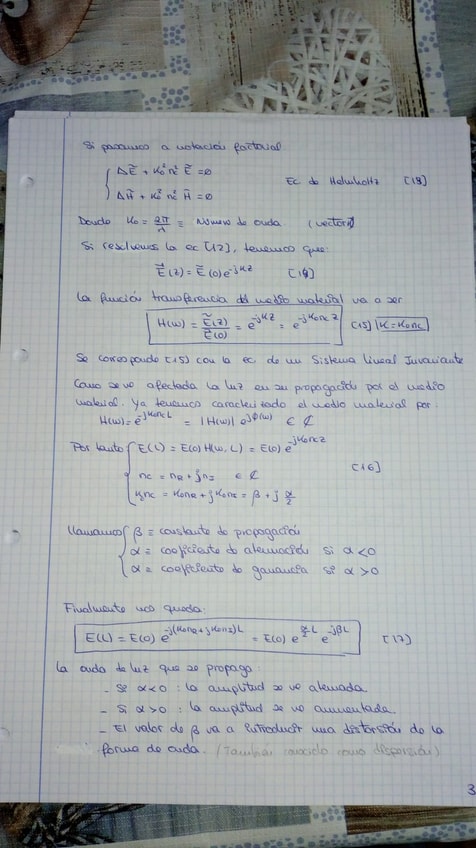 Si pasamos a notación fasorial
ΔẼ + K₀² n_c² Ẽ = 0
Ec de Helmholtz [13]
ΔH̃ + K₀² n_c² H̃ = 0
Donde K₀ = 2π/λ ≡ Número de onda. (vector)
Si resolvemos la ec [12], tenemos que:
Ẽ(z) = Ẽ(0) e^{-jKz} [14]
La función transferencia del medio material va a ser
H(ω) = Ẽ(z)/Ẽ(0) = e^{-jKz} = e^{-jK₀n_c z} [15] K = K₀n_c
Se corresponde [15] con la ec. de un Sistema Lineal Invariante
Como se ve afectada la luz en su propagación por el medio
material. Ya tenemos caracterizado el medio material por:
H(ω) = e^{-jK₀n_c L} = |H(ω)| e^{jϕ(ω)} ∈ ℂ
Por tanto E(L) = E(0) H(ω, L) = E(0) e^{-jK₀n_c z}
[16]
n_c = n_R + j n_I ∈ ℂ
K₀n_c = K₀n_R + j K₀n_I = β + j α/2
Llamamos β ≡ constante de propagación
α ≡ coeficiente de atenuación si α < 0
α ≡ coeficiente de ganancia si α > 0
Finalmente nos queda:
E(L) = E(0) e^{-j(K₀n_R + jK₀n_I)L} = E(0) e^{α/2 L} e^{-jβL} [17]
La onda de luz que se propaga:
- Si α < 0 : la amplitud se ve atenuada
- Si α > 0 : la amplitud se ve aumentada.
- El valor de β va a introducir una distorsión de la
forma de onda. (También conocido como dispersión)
3